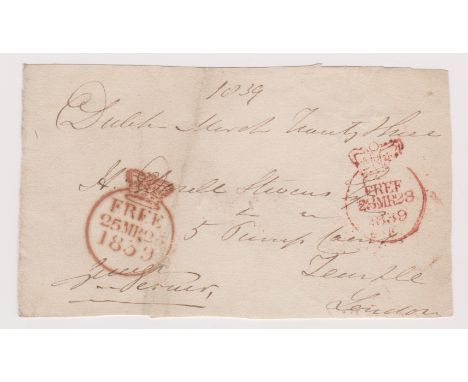 1839
March Twenty three
H. Stevens
5 Pump Court
Temple
London
FREE
25MR25
1839
FREE
25MR23
1839